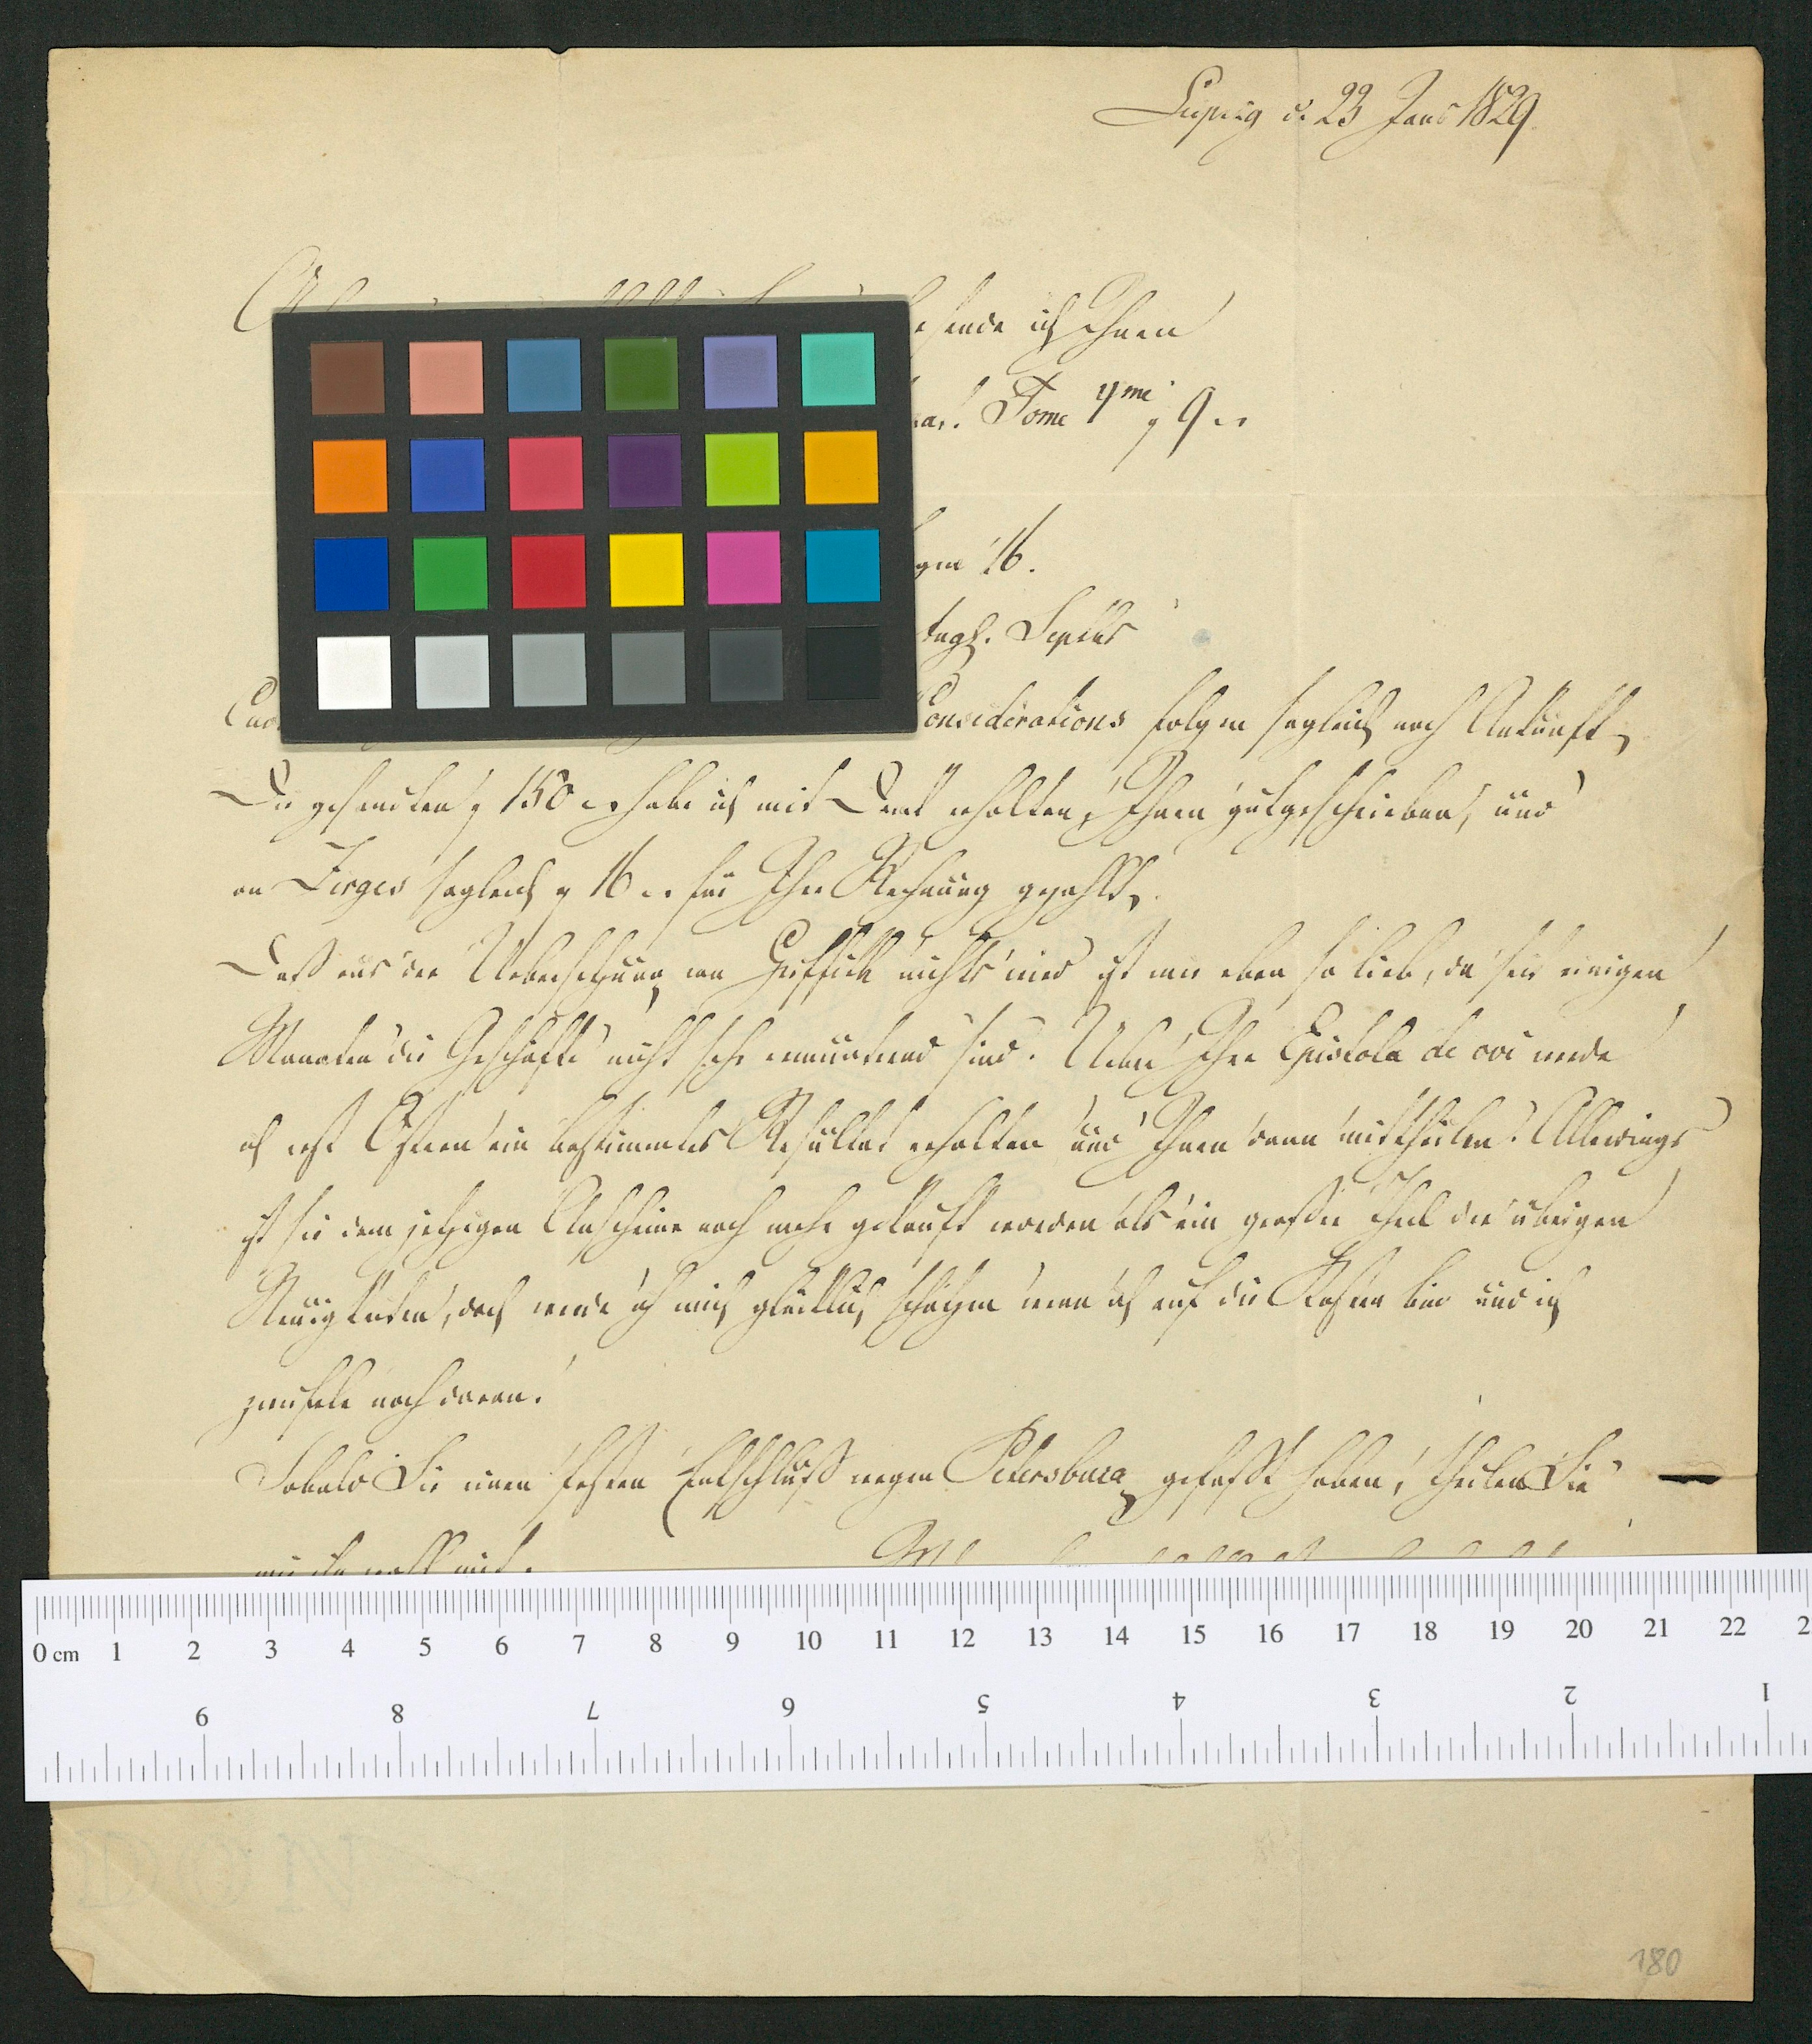 Leipzig d. 23 Janr 1829.
sende ich Ihnen
Tome 4me 9
16.
Considerations folgen sogleich nach Ankunft,
Die gesendeten 150 habe ich mit Dank erhalten, Ihnen gutgeschrieben, und
an Zirges sogleich 16 für Ihre Rechnung gezahlt,
Daß aus der Uebersetzung von nichts wird ist mir eben so lieb, da seit einigen
Monaten die Geschäfte nicht sehr ermunternd sind. Ueber Ihre Epistola de ovi werde
ich erst Ostern ein bestimmtes Resultat erhalten und Ihnen dann mittheilen. Allerdings
ist sie dem jetzigen Anscheine nach mehr gekauft worden als ein großer Theil der übrigen
Neuigkeiten, doch werde ich mich glücklich schätzen wenn ich auf die Kosten bin und ich
zweifele noch daran.
Sobald Sie einen festen Entschluß wegen Petersburg gefaßt haben, theilen Sie
mit.
0 cm 1 2 3 4 5 6 7 8 9 10 11 12 13 14 15 16 17 18 19 20 21 22 2
9 8 7 6 5 4 3 2 1
180